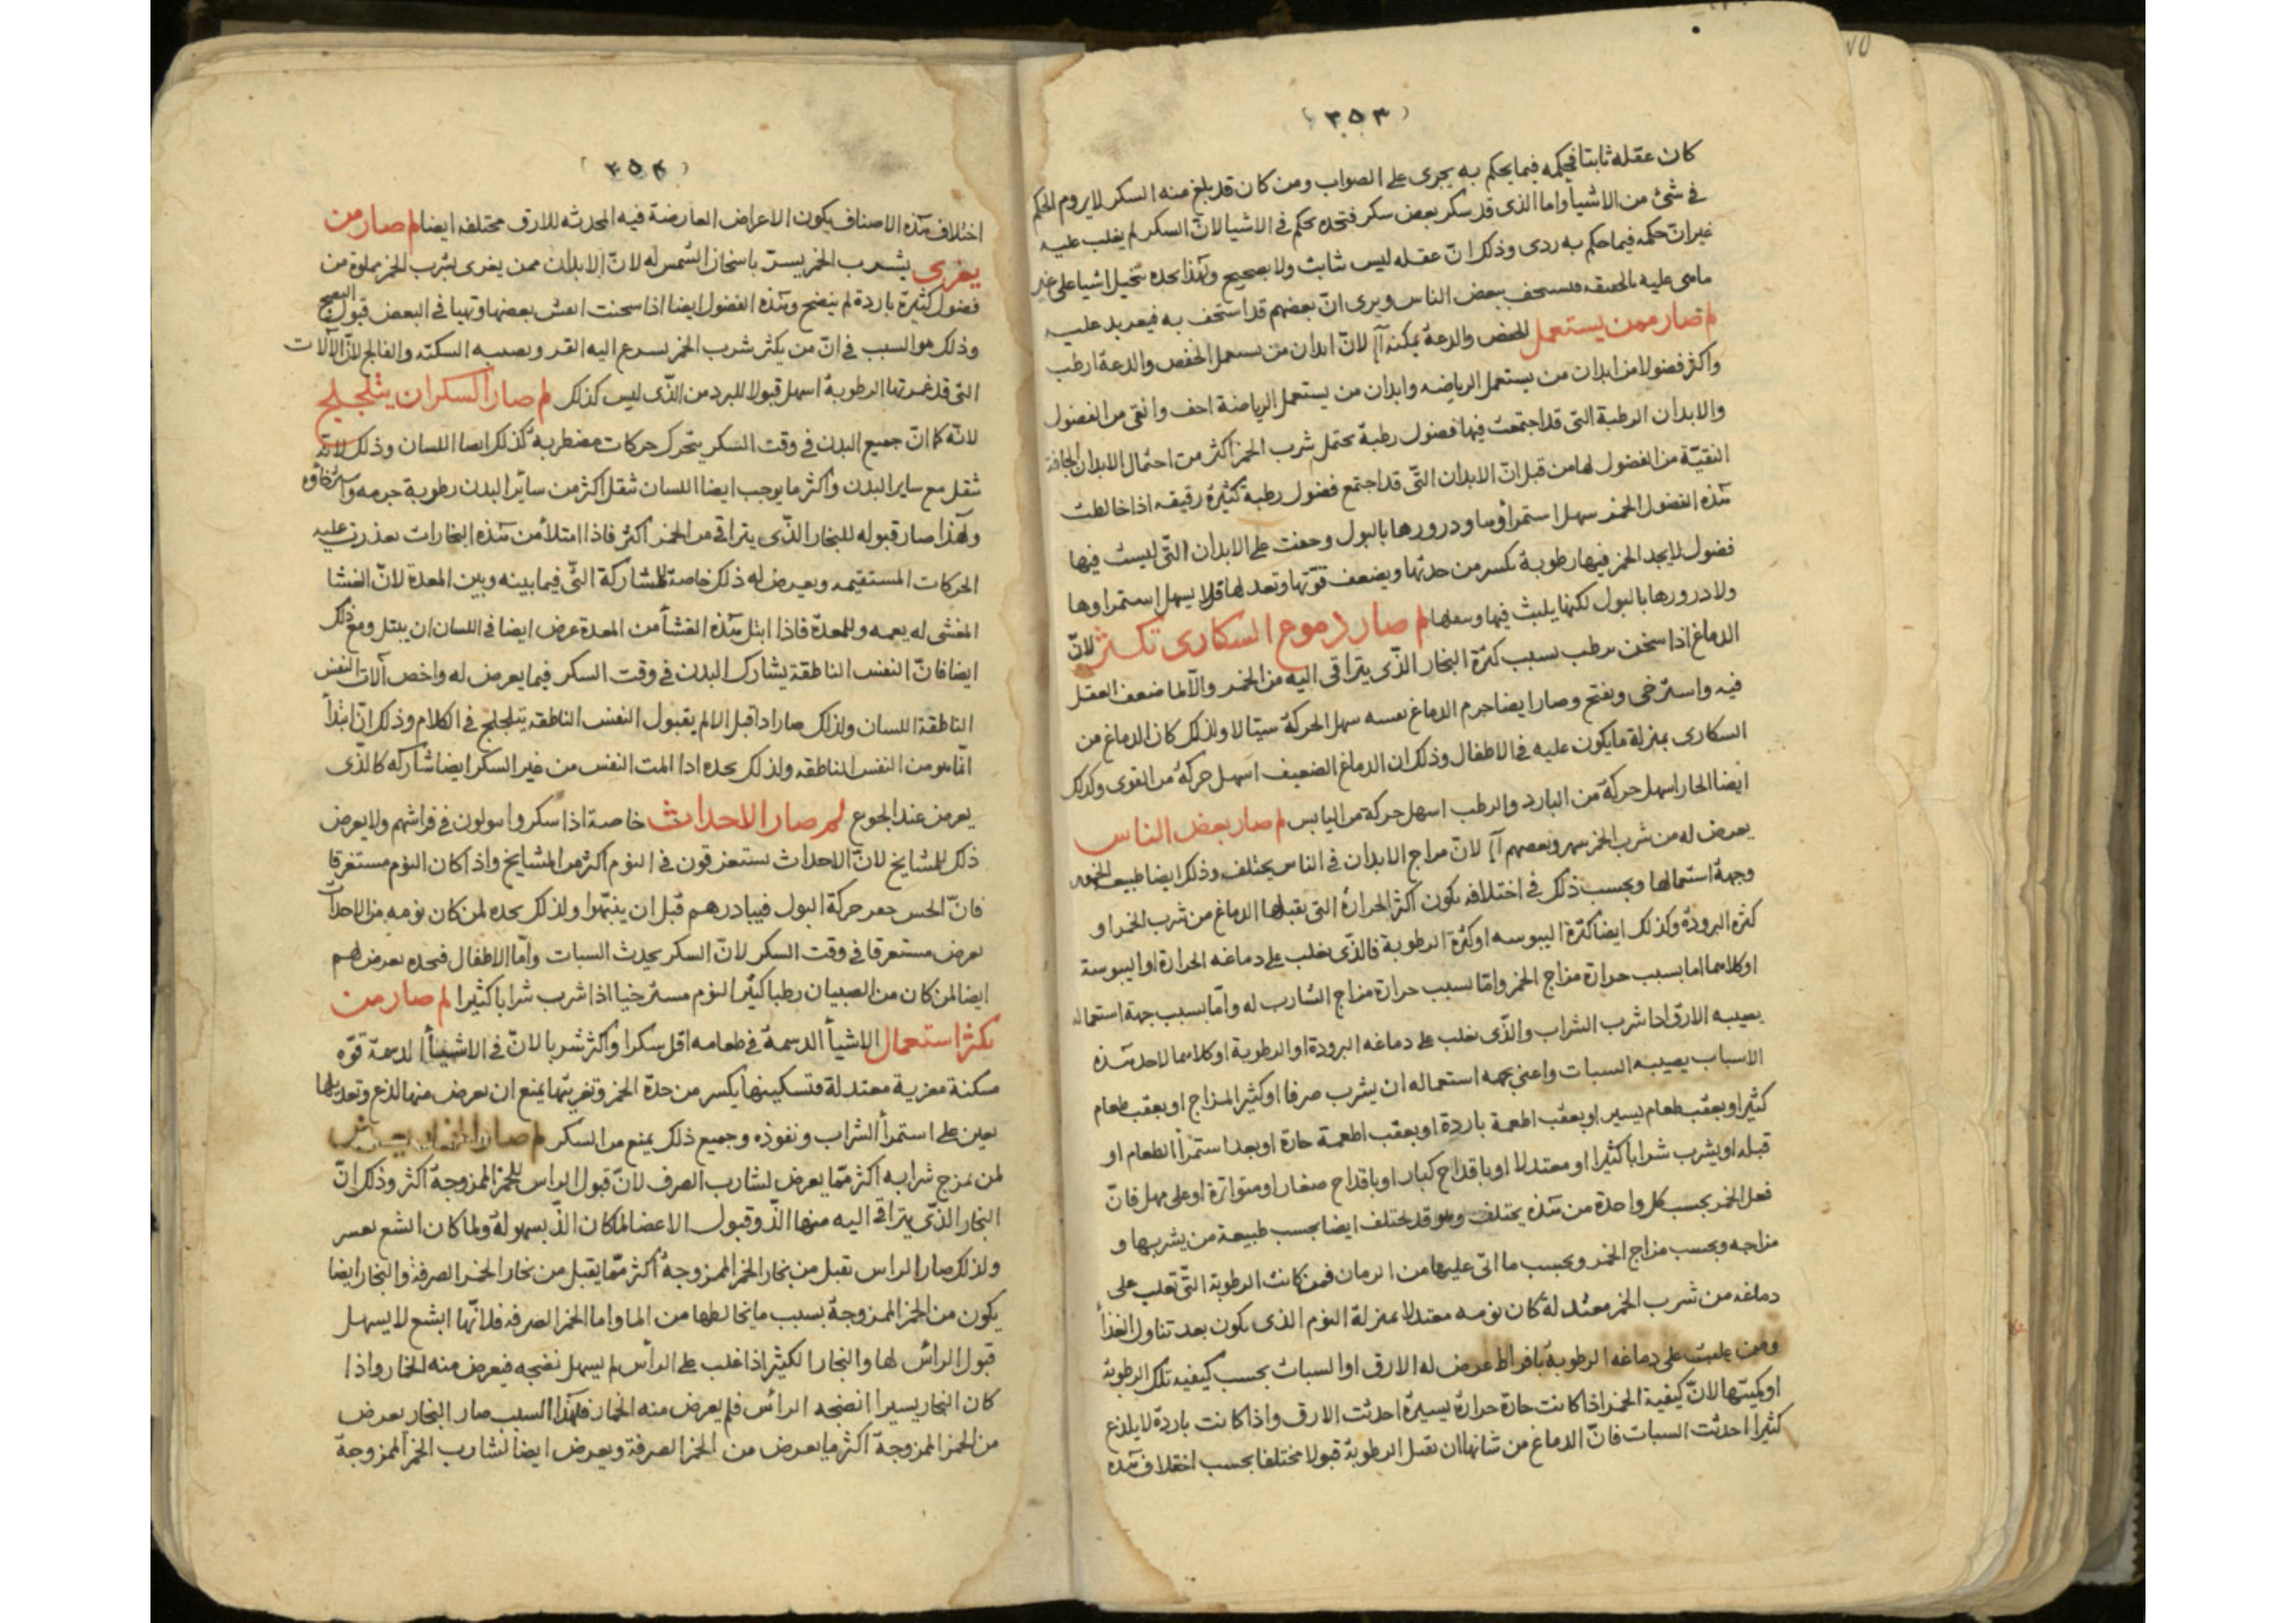 (٣٥٣)
كان عقله ثابتا فحكمه فيما يحكم به يجرى على الصواب ومن كان قد بلغ منه السكر لا يروم الحكم
فى شئ من الاشيا واما الذى قد سكر بعض سكر فتجده يحكم فى الاشيا لانّ السكر لم يغلب عليه
غير انّ حكمه فيما حكم به ردى وذلك انّ عقله ليس ثابث ولا بصحيح ولهذا نجده يتخيل اشيا على غير
ما هى عليه بالحقيقه بعض الناس ويرى انّ بعضهم قد استخف به فيعربد عليه
لم صار ممن يستعمل الخفض والدعة يمكنه لانّ ابدان من يستعمل الخفض والدعة ارطب
واكثر فضولا من ابدان من يستعمل الرياضه وابدان من يستعمل الرياضة اجف وانقى من الفضول
والابدان الرطبة التى قد اجتمعت فيها فضول رطبة تحتمل شرب الخمر اكثر من احتمال الابدان الجافة
النقيّة من الفضول لها من قبل انّ الابدان التّى قد اجتمع فضول رطبة كثيرة رقيقه اذا خالطت
هذه الفضول الخمر سهل استمراؤها ودرورها بالبول وخفت على الابدان التّى ليست فيها
فضول لا يجد الخمر فيها رطوبة تكسر من حدتها ويضعف قوّتها وتعدلها فلا يسهل استمراوها
ولا درورها بالبول لكنها يلبث فيها لم صار دموع السكارى تكثر لانّ
الدماغ اذا سخن رطب بسبب كثرة البخار الذّى يتراقى اليه من الخمر والآلما ضعف العقل
فيه واسترخى وصار ايضا جرم الدماغ نفسه سهل الحركة سيّالا ولذلك كان الدماغ من
السكارى بمنزلة ما يكون عليه فى الاطفال وذلك ان الدماغ الضعيف اسهل حركة من القوى وكذلك
ايضا الحار اسهل حركة من البارد والرطب اسهل حركة من اليابس لم صار بعض الناس
يعرض له من شرب الخمر سهر وبعضهم لانّ مزاج الابدان فى الناس يختلف وذلك ايضا طبيعة الخمور
وجهة استعمالها وبحسب ذلك فى اختلافه يكون اكثر الحرارة التى يقبلها الدماغ من شرب الخمر او
كثرة البرودة وكذلك ايضا كثرة اليبوسه او كثرة الرطوبة فالذّى يغلب على دماغه الحرارة او اليبوسة
او كلاهما اما بسبب حرارة مزاج الخمر وامّا بسبب حرارة مزاج الشارب له وامّا بسبب جهة استعماله
يصيبه الارق اذا شرب الشراب والذّى يغلب على دماغه البرودة او الرطوبة او كلاهما لاحد هذه
الاسباب يصيبه السبات واعنى بجهه استعماله ان يشرب صرفا او كثير المزاج او بعقب طعام
كثير او بعقب طعام يسير او بعقب اطعمة باردة او بعقب اطعمة حارة او بعد استمرأ الطعام او
قبله او يشرب شرابا كثيرا او معتدلا او باقداح كبار او باقداح صغار او متواترة او على مهل فانّ
فعل الخمر بحسب كل واحدة من هذه يختلف وهو قد يختلف ايضا بحسب طبيعة من يشربها و
مزاجه وبحسب مزاج الخمر وبحسب ما اتى عليها من الزمان فمن كانت الرطوبة التّى تغلب على
دماغه من شرب الخمر معتدلة كان نومه معتدلا بمنزلة النوم الذى يكون بعد تناول الغذأ
ومن غلبت على دماغه الرطوبة بافراط عرض له الارق او السبات بحسب كيفيه تلك الرطوبة
او كميّتها لانّ كيفية الخمر اذا كانت حادّة حرارة يسيرة احدثت الارق واذا كانت باردة لا يلذع
كثيرا احدثت السبات فانّ الدماغ من شانها ان تقبل الرطوبة قبولا مختلفا بحسب اختلاف هذه
(٣٥٤)
اختلاف هذه الاصناف يكون الاعراض العارضة فيه المحدثه للارق مختلفه ايضا لم صار من
يغرى بشرب الخمر يسرّ باسخان الشمس له لانّ الابدان ممن يغرى بشرب الخمر مملوة من
فضول كثيرة باردة لم ينضج وهذه الفضول ايضا اذا سخنت انفش بعضها وتهيا فى البعض قبول النضج
وذلك هو السبب فى انّ من يكثر شرب الخمر يسرع اليه ويصيبه السكته والفالج لانّ الآلات
التى قد غمرتها الرطوبة اسهل قبولا للبرد من الذّى ليس كذلك لم صار السكران يتلجلج
لانّه كما انّ جميع البدن فى وقت السكر يتحرك حركات مضطربة كذلك ايضا اللسان وذلك لانّه
ثقل مع ساير البدن واكثر ما يوجب ايضا اللسان ثقل اكثر من سائر البدن رطوبة جرمه واسترخاؤه
ولهذا صار قبوله للبخار الذّى يتراقى من الخمر اكثر فاذا امتلأ من هذه البخارات تعذرت عليه
الحركات المستقيمه ويعرض له ذلك خاصة للمشاركة التّى فيما بينه وبين المعدة لانّ الغشا
المغشى له يعمه وللمعدّة فاذا ابتل هذه الغشأ من المعدة عرض ايضا فى اللسان ان يبتل ومع ذلك
ايضا فانّ النفس الناطقة يشارك البدن فى وقت السكر فيما يعرض له واخص آلات النفس
الناطقة اللسان ولذلك صار اذا قبل الالم بقبول النفس الناطقه يتلجلج فى الكلام وذلك انّ ابتدأ
انّما هو من النفس الناطقه ولذلك نجده اذا المت النفس من غير السكر ايضا شاركه كالذّى
يعرض عند الجوع لم صار الاحداث خاصة اذا سكروا يبولون فى فراشهم ولا يعرض
ذلك للمشايخ لانّ الاحداث يستغرقون فى النوم اكثر من المشايخ واذا كان النوم مستغرقا
فانّ الحس حركة البول فيبادرهم قبل ان ينتبهوا ولذلك نجده لمن كان نومه من الاحداث
يعرض مستغرقا فى وقت السكر لانّ السكر يحدث السبات وامّا الاطفال فنجده يعرض لهم
ايضا لمن كان من الصبيان رطبا كثير النوم مسترخيا اذا شرب شرابا كثيرا لم صار من
يكثر استعمال الاشيأ الدسمة فى طعامه اقل سكرا واكثر شربا لانّ فى الاشيأ الدسمة قوّه
مسكنة مغرية معتدلة فتسكينها يكسر من حدة الخمر وتغريتها يمنع ان يعرض منها لذع وتعديلها
يعين على استمرأ الشراب ونفوذه وجميع ذلك يمنع من السكر لم صار الخمار يعرض
لمن يمزج شرابه اكثر ممّا يعرض لشارب الصرف لانّ قبول الراس للخمر الممزوجة اكثر وذلك انّ
البخار الذّى يتراقى اليه منها الذّ وقبول الاعضا لما كان الذّ بسهولة ولما كان ابشع بعسر
ولذلك صار الراس تقبل من بخار الخمر الممزوجة اكثر ممّا يقبل من بخار الخمر الصرفة والبخار ايضا
يكون من الخمر الممزوجة بسبب ما يخالطها من الما واما الخمر الصرفه فلانّها ابشع لا يسهل
قبول الرائس لها والبخار الكثير اذا غلب على الرأس لم يسهل نضجه فيعرض منه الخمار واذا
كان البخار يسيرا انضجه الرائس فلم يعرض منه الخمار فلهذا السبب صار البخار يعرض
من الخمر الممزوجة اكثر ما يعرض من الخمر الصرفة ويعرض ايضا لشارب الخمر الممزوجة